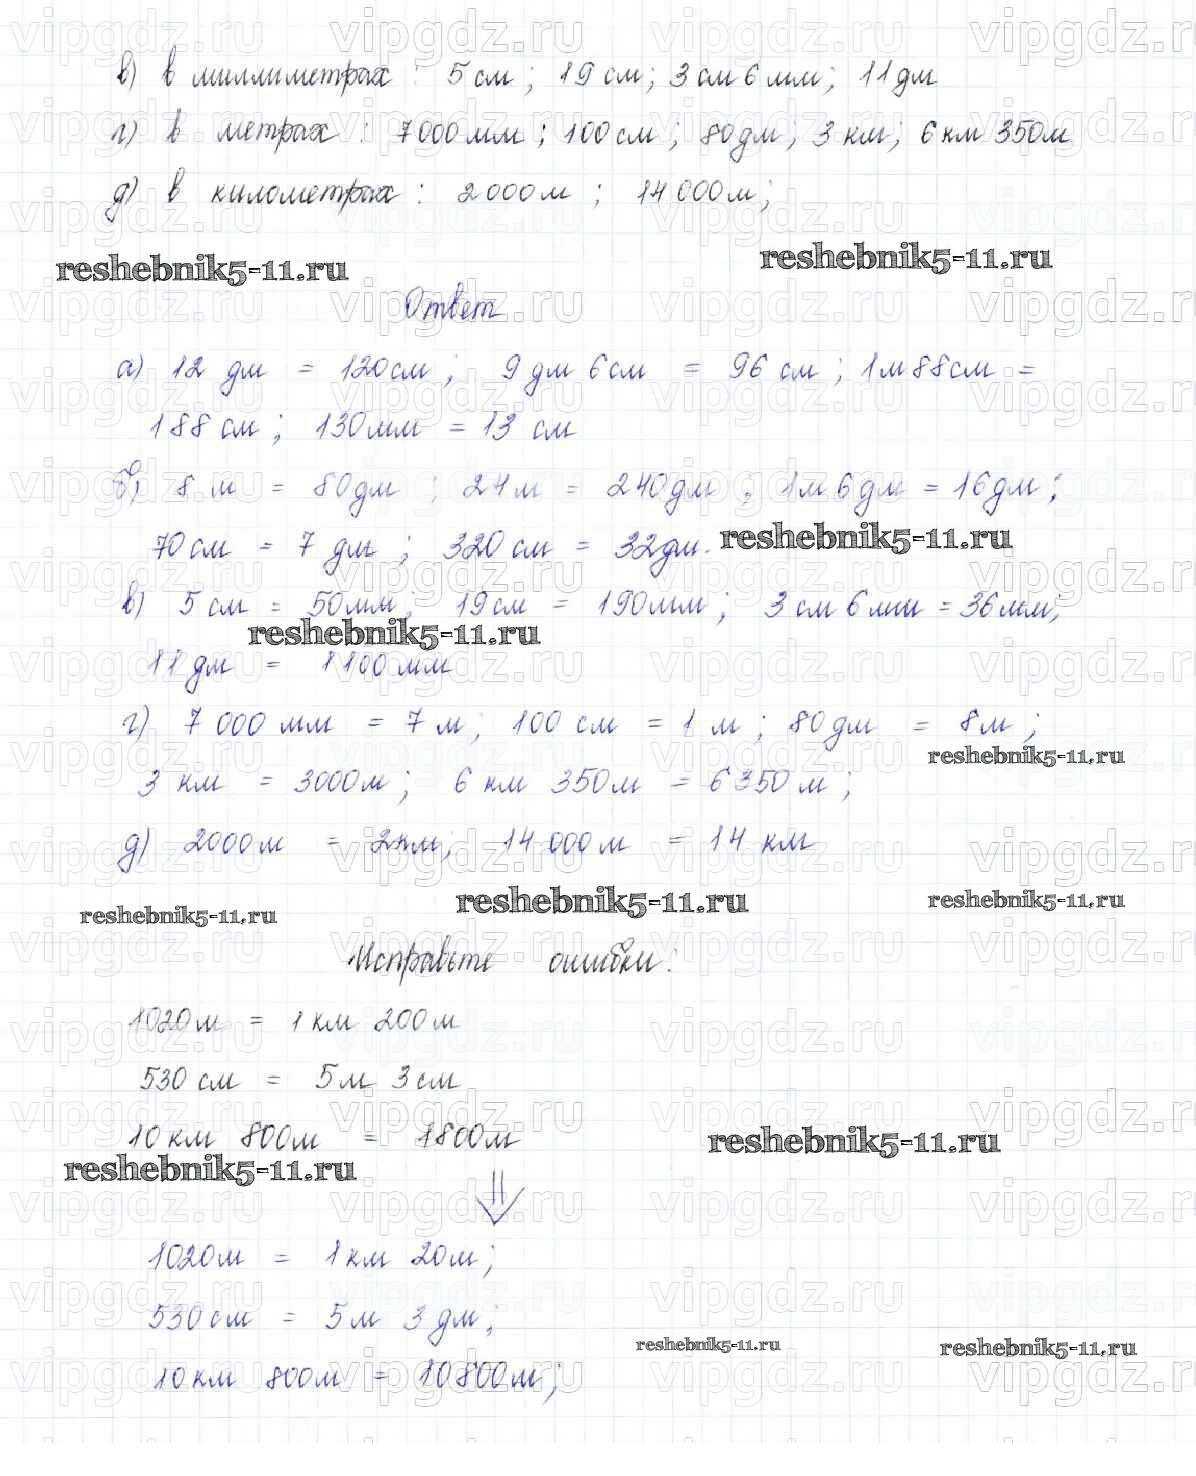 в) в миллиметрах : 5 см ; 19 см ; 3 см 6 мм ; 11 дм
г) в метрах : 7000 мм ; 100 см ; 80 дм ; 3 км ; 6 км 350 м
д) в километрах : 2000 м ; 14 000 м ;
reshebnik5-11.ru reshebnik5-11.ru
Ответ
а) 12 дм = 120 см ; 9 дм 6 см = 96 см ; 1 м 88 см =
188 см ; 130 мм = 13 см
б) 8 м = 80 дм ; 24 м = 240 дм ; 1 м 6 дм = 16 дм ;
70 см = 7 дм ; 320 см = 32 дм. reshebnik5-11.ru
в) 5 см = 50 мм ; 19 см = 190 мм ; 3 см 6 мм = 36 мм ;
reshebnik5-11.ru
11 дм = 1100 мм
г) 7 000 мм = 7 м ; 100 см = 1 м ; 80 дм = 8 м ;
reshebnik5-11.ru
3 км = 3000 м ; 6 км 350 м = 6350 м ;
д) 2000 м = 2 км ; 14 000 м = 14 км
reshebnik5-11.ru reshebnik5-11.ru reshebnik5-11.ru
Исправьте ошибки :
1020 м = 1 км 200 м
530 см = 5 м 3 см
10 км 800 м = 1800 м
reshebnik5-11.ru reshebnik5-11.ru
1020 м = 1 км 20 м ;
530 см = 5 м 3 дм ;
reshebnik5-11.ru reshebnik5-11.ru
10 км 800 м = 10 800 м ;
vipgdz.ru